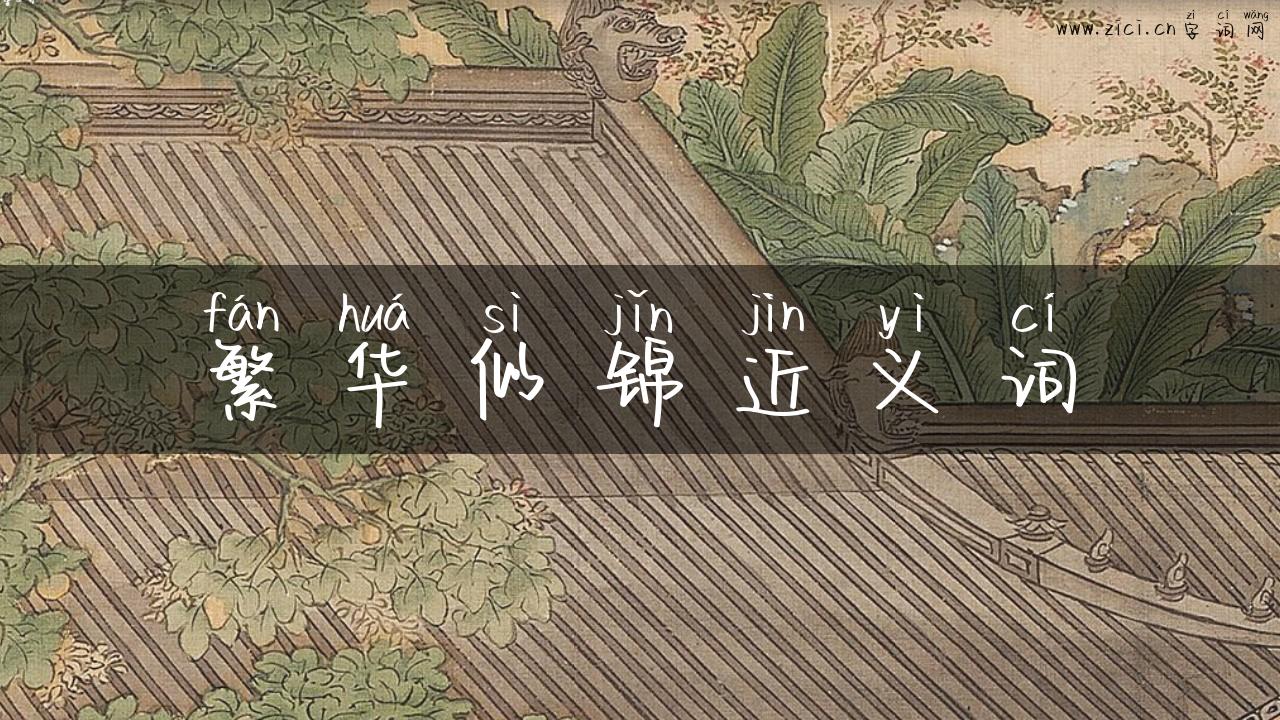 zì cí wǎng
www.zici.cn 字词网
fán huá sì jǐn jìn yì cí
繁华似锦近义词